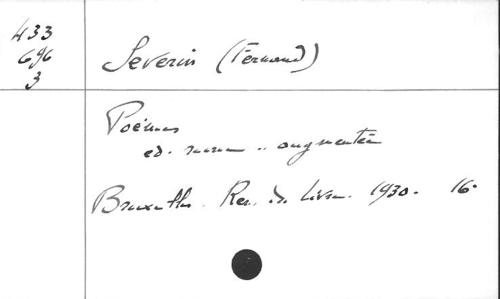 433
696
3
Severin (Fernand)
Poèmes
ed. revue et augmentée
Bruxelles. Ren. du Livre. 1930. 16°